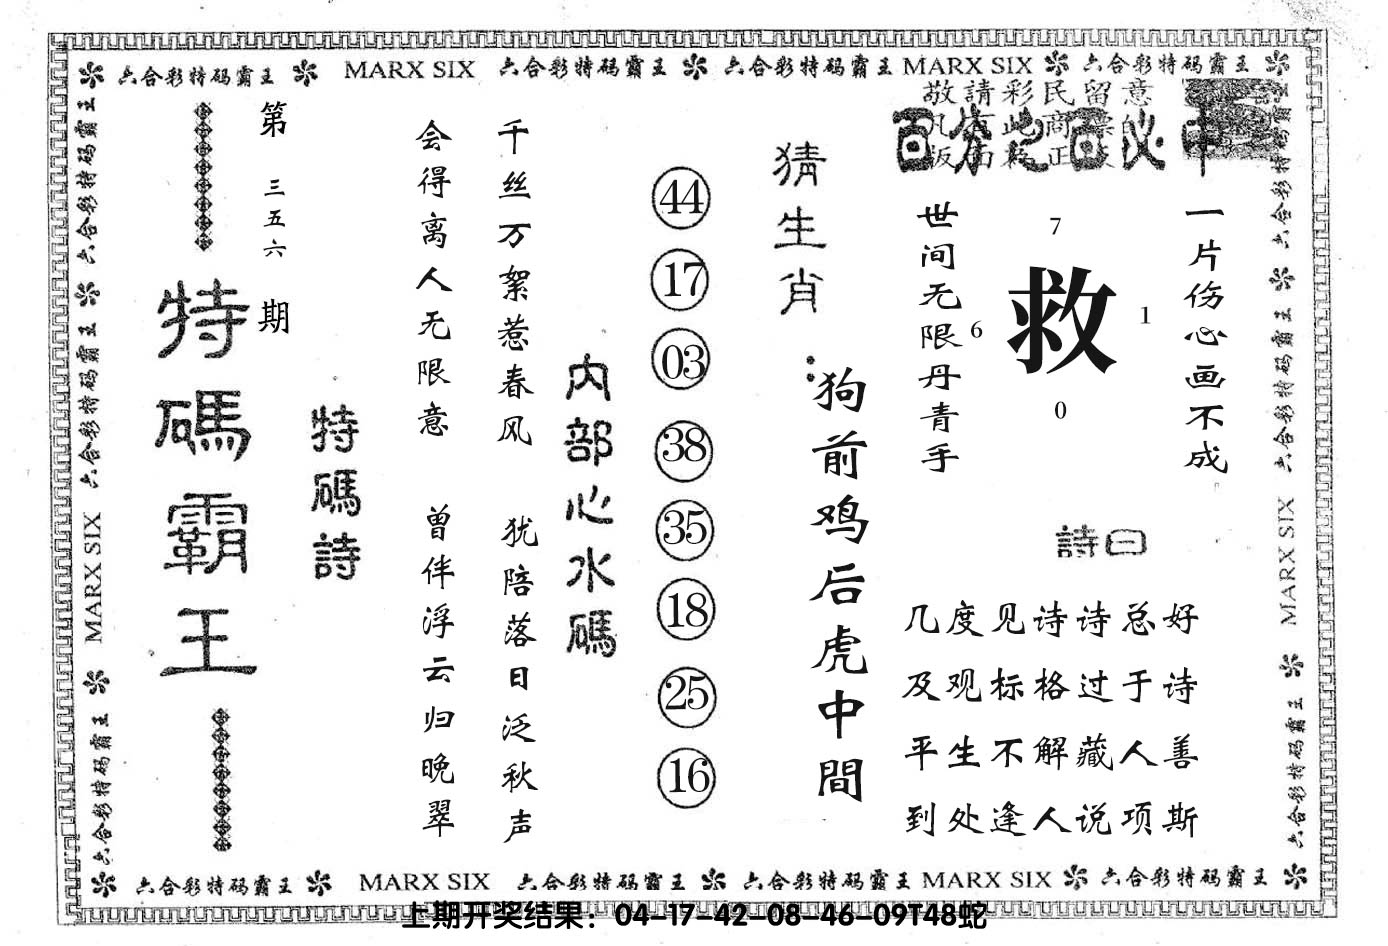 六合彩特码霸王 MARX SIX 六合彩特码霸王 六合彩特码霸王 MARX SIX 六合彩特码霸王
敬請彩民留意
百分之百必中
一片伤心画不成
7
救
6
1
0
世间无限丹青手
詩曰
几度见诗诗总好
及观标格过于诗
平生不解藏人善
到处逢人说项斯
猜生肖：
狗前鸡后虎中間
44
17
03
38
35
18
25
16
内部心水碼
千丝万絮惹春风 犹陪落日泛秋声
会得离人无限意 曾伴浮云归晚翠
特碼詩
第三五六期
特碼霸王
六合彩特码霸王 六合彩特码霸王 MARX SIX 六合彩特码霸王
六合彩特码霸王 六合彩特码霸王 MARX SIX 六合彩特码霸王
六合彩特码霸王 MARX SIX 六合彩特码霸王 六合彩特码霸王 MARX SIX 六合彩特码霸王
上期开奖结果：04-17-42-08-46-09T48蛇